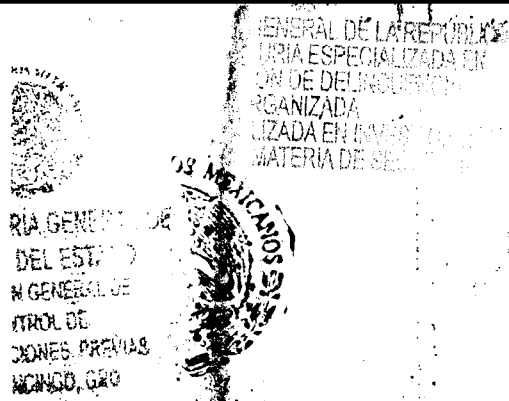 ENERAL DE LA REPÚBLICA
URIA ESPECIALIZADA EN
ÓN DE DELINCUENCIA
RGANIZADA
LIZADA EN
MATERIA DE
OS MEXICANOS
RIA GENERAL DE
DEL ESTADO
N GENERAL DE
NTROL DE
CIONES PREVIAS
NCINGO, GRO